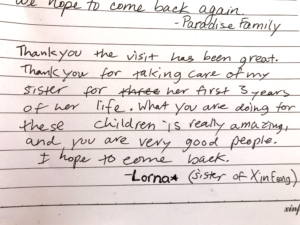 we hope to come back again.
-Paradise Family
Thank you the visit has been great.
Thank you for taking care of my
sister for her first 3 years
of her life. What you are doing for
these children is really amazing,
and you are very good people.
I hope to come back.
-Lorna (sister of XinFang)
xinf